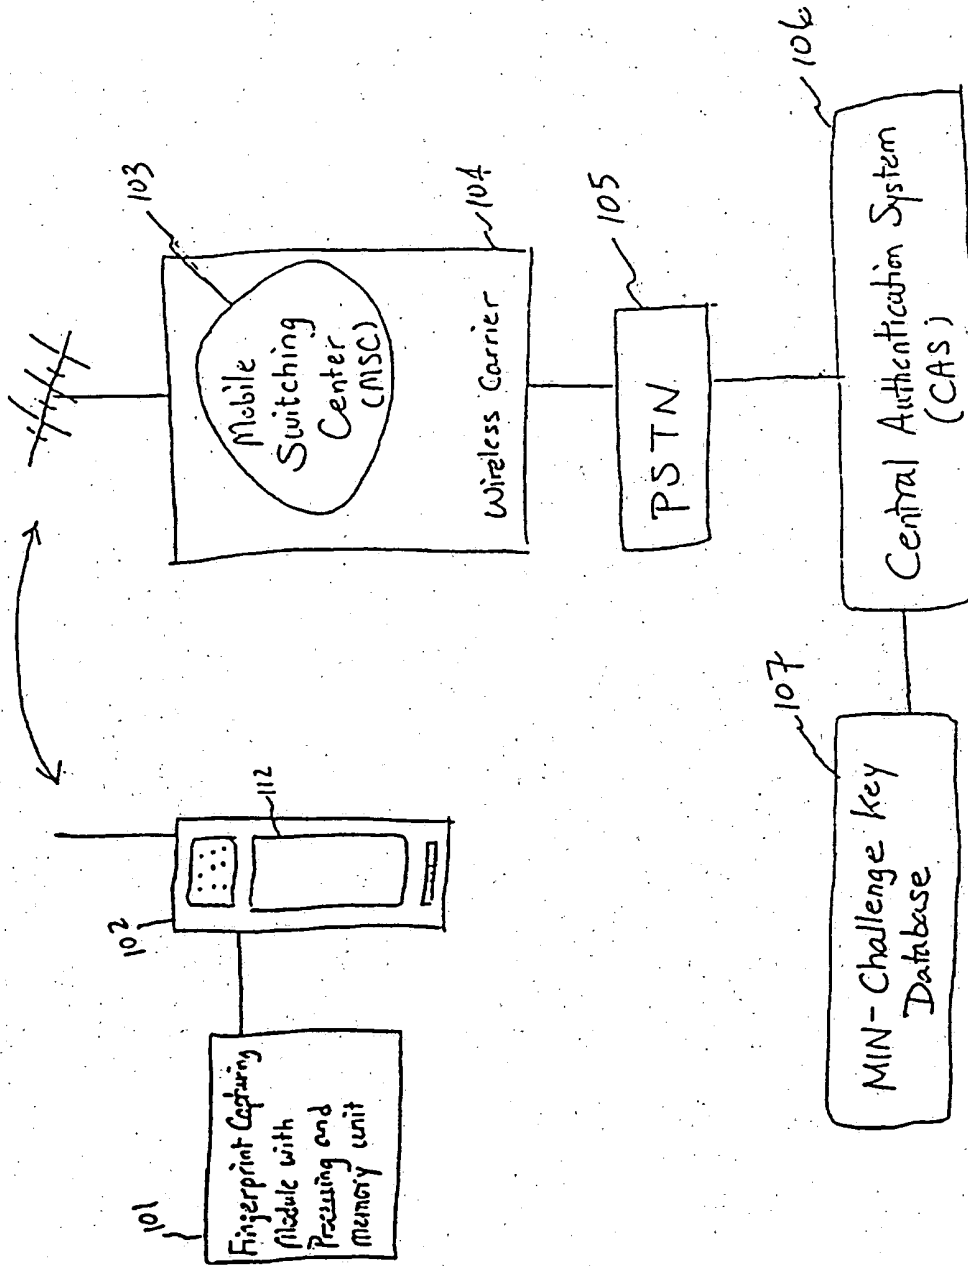 101
Fingerprint Capturing
Module with
Processing and
memory unit
102
112
103
Mobile
Switching
Center
(MSC)
104
Wireless Carrier
105
PSTN
106
Central Authentication System
(CAS)
107
MIN-Challenge Key
Database